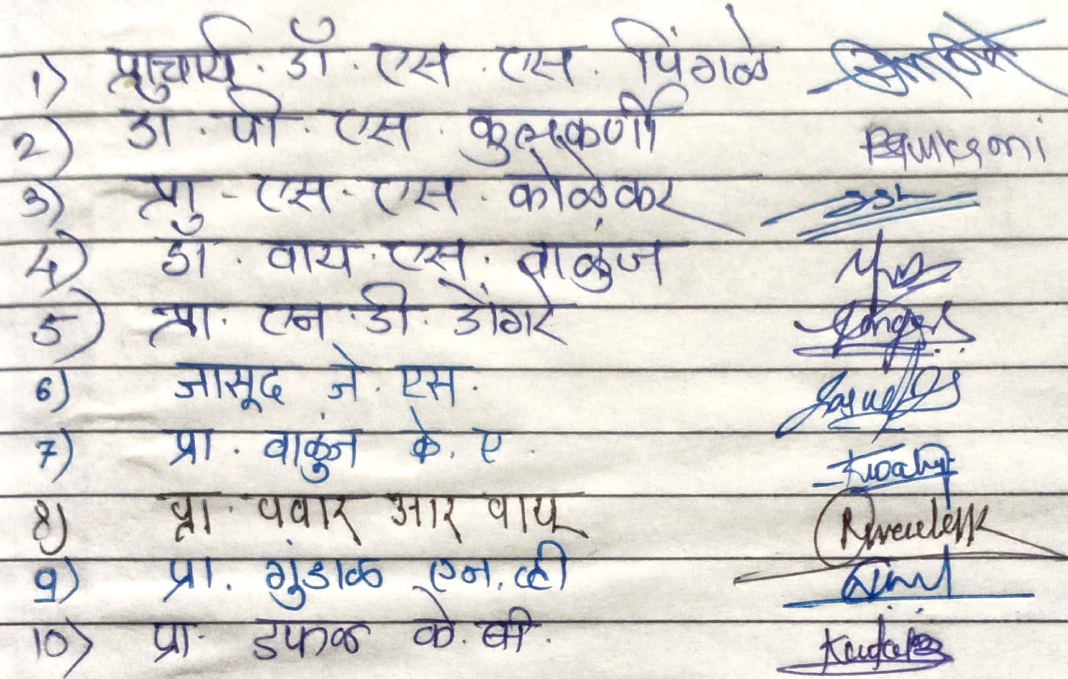 1) प्राचार्य. डॉ. एस. एस. पिंगळे
2) डॉ. पी. एस. कुलकर्णी
3) प्रा. एस. एस. कोळेकर
4) डॉ. वाय. एस. वाळुंज
5) प्रा. एन. डी. डोंगरे
6) जासूद जे. एस.
7) प्रा. वाळुंज के. ए.
8) प्रा. पवार आर वाय
9) प्रा. गुंडाळ एन. व्ही
10) प्रा. डफळ के. बी.